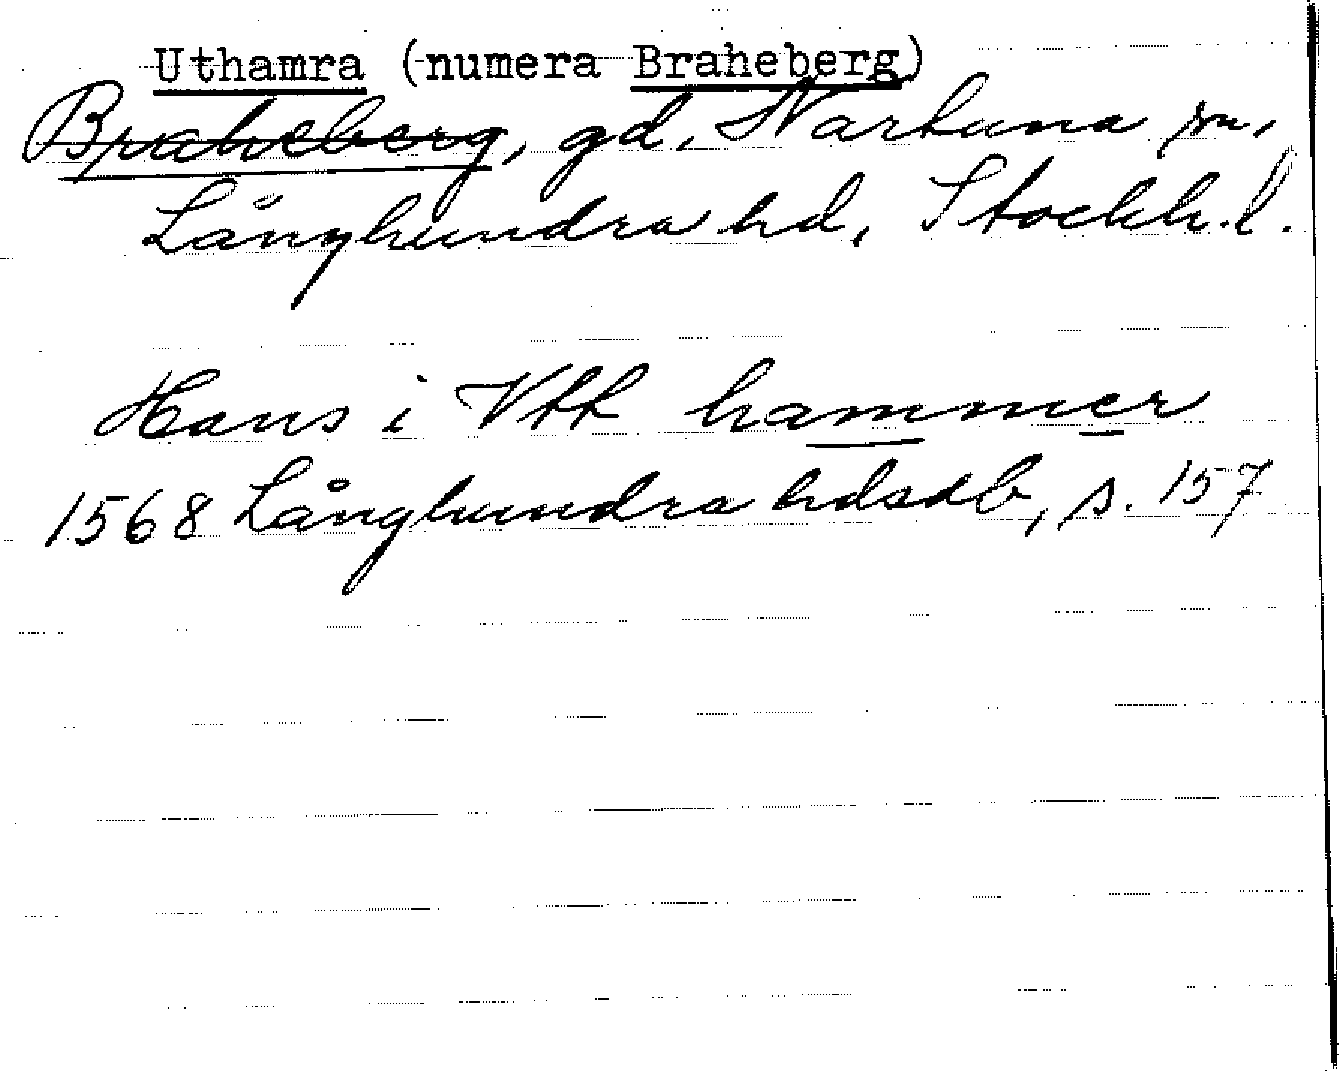 Uthamra (numera Braheberg)
Braheberg, gd, Närtuna sn,
Långhundra hd, Stockh. l.
Hans i Vtt hammer
1568 Långhundra hdsdb, s. 157